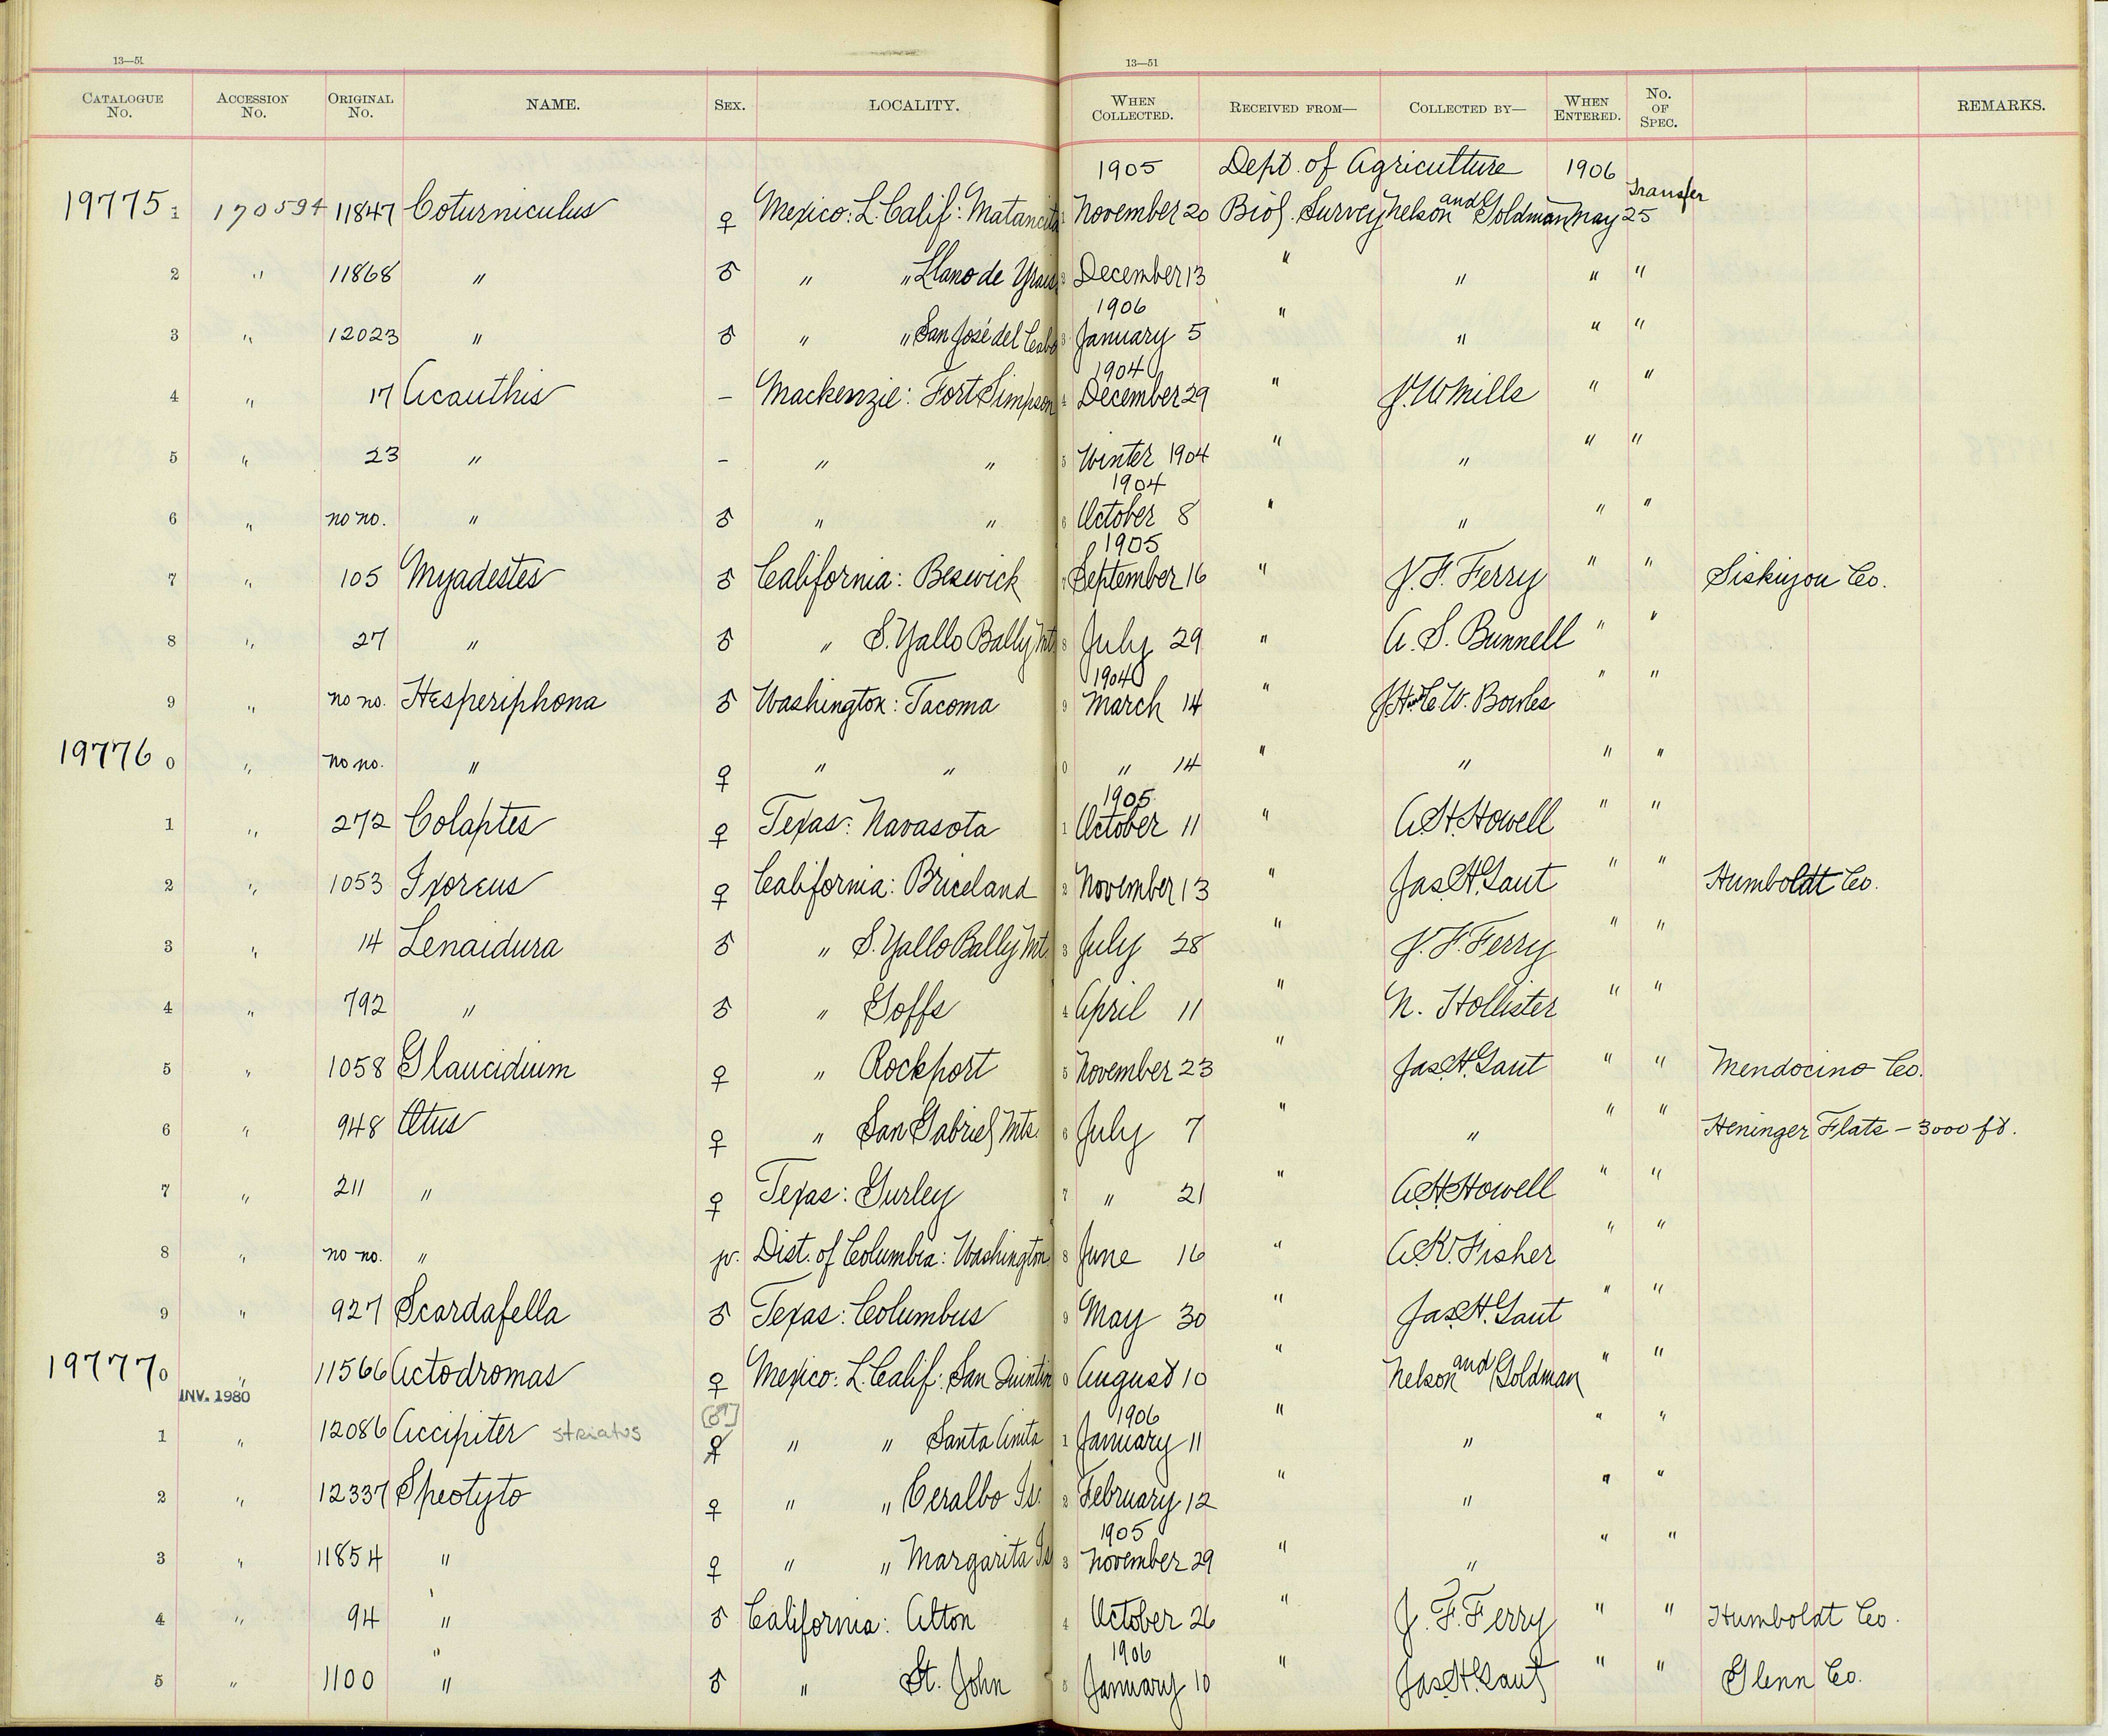 13—51 13—51
CATALOGUE No. ACCESSION No. ORIGINAL No. NAME. SEX. LOCALITY. WHEN COLLECTED. RECEIVED FROM— COLLECTED BY— WHEN ENTERED. No. OF SPEC. REMARKS.
1905 Dept. of Agriculture 1906
19775 1 170594 11847 Coturniculus ♀ Mexico: L. Calif: Matancita 1 November 20 Biol. Survey Nelson and Goldman May 25 Transfer
2 " 11868 " ♂ " " Llano de Yrais 2 December 13 " " " "
1906
3 " 12023 " ♂ " " San José del Cabo 3 January 5 " " " "
1904
4 " 17 Acanthis – Mackenzie: Fort Simpson 4 December 29 " J. W. Mills " "
5 " 23 " – " " 5 Winter 1904 " " " "
1904
6 " no no. " ♂ " " 6 October 8 " " " "
1905
7 " 105 Myadestes ♂ California: Beswick 7 September 16 " J. F. Ferry " " Siskiyou Co.
8 " 27 " ♂ " S. Yallo Bally Mt. 8 July 29 " A. S. Bunnell " "
1904
9 " no no. Hesperiphona ♂ Washington: Tacoma 9 March 14 " J.H. & C. W. Bowles " "
19776 0 " no no. " ♀ " " 0 " 14 " " " "
1905
1 " 272 Colaptes ♀ Texas: Navasota 1 October 11 " A. H. Howell " "
2 " 1053 Ixoreus ♀ California: Briceland 2 November 13 " Jas. H. Gaut " " Humboldt Co.
3 " 14 Zenaidura ♂ " S. Yallo Bally Mt. 3 July 28 " J. F. Ferry " "
4 " 792 " ♂ " Goffs 4 April 11 " N. Hollister " "
5 " 1058 Glaucidium ♀ " Rockport 5 November 23 " Jas. H. Gaut " " Mendocino Co.
6 " 948 Otus ♀ " San Gabriel Mts. 6 July 7 " " " " Heninger Flats – 3000 ft.
7 " 211 " ♀ Texas: Gurley 7 " 21 " A. H. Howell " "
8 " no no. " jv. Dist. of Columbia: Washington 8 June 16 " A. K. Fisher " "
9 " 927 Scardafella ♂ Texas: Columbus 9 May 30 " Jas. H. Gaut " "
19777 0 " 11566 Actodromas ♀ Mexico: L. Calif: San Quintin 0 August 10 " Nelson and Goldman " "
INV. 1980
[♂] 1906
1 " 12086 Accipiter striatus ♀ " " Santa Anita 1 January 11 " " " "
2 " 12337 Speotyto ♀ " " Ceralbo Is. 2 February 12 " " " "
1905
3 " 11854 " ♀ " " Margarita Is. 3 November 29 " " " "
4 " 94 " ♂ California: Alton 4 October 26 " J. F. Ferry " " Humboldt Co.
1906
5 " 1100 " ♂ " St. John 5 January 10 " Jas. H. Gaut " " Glenn Co.